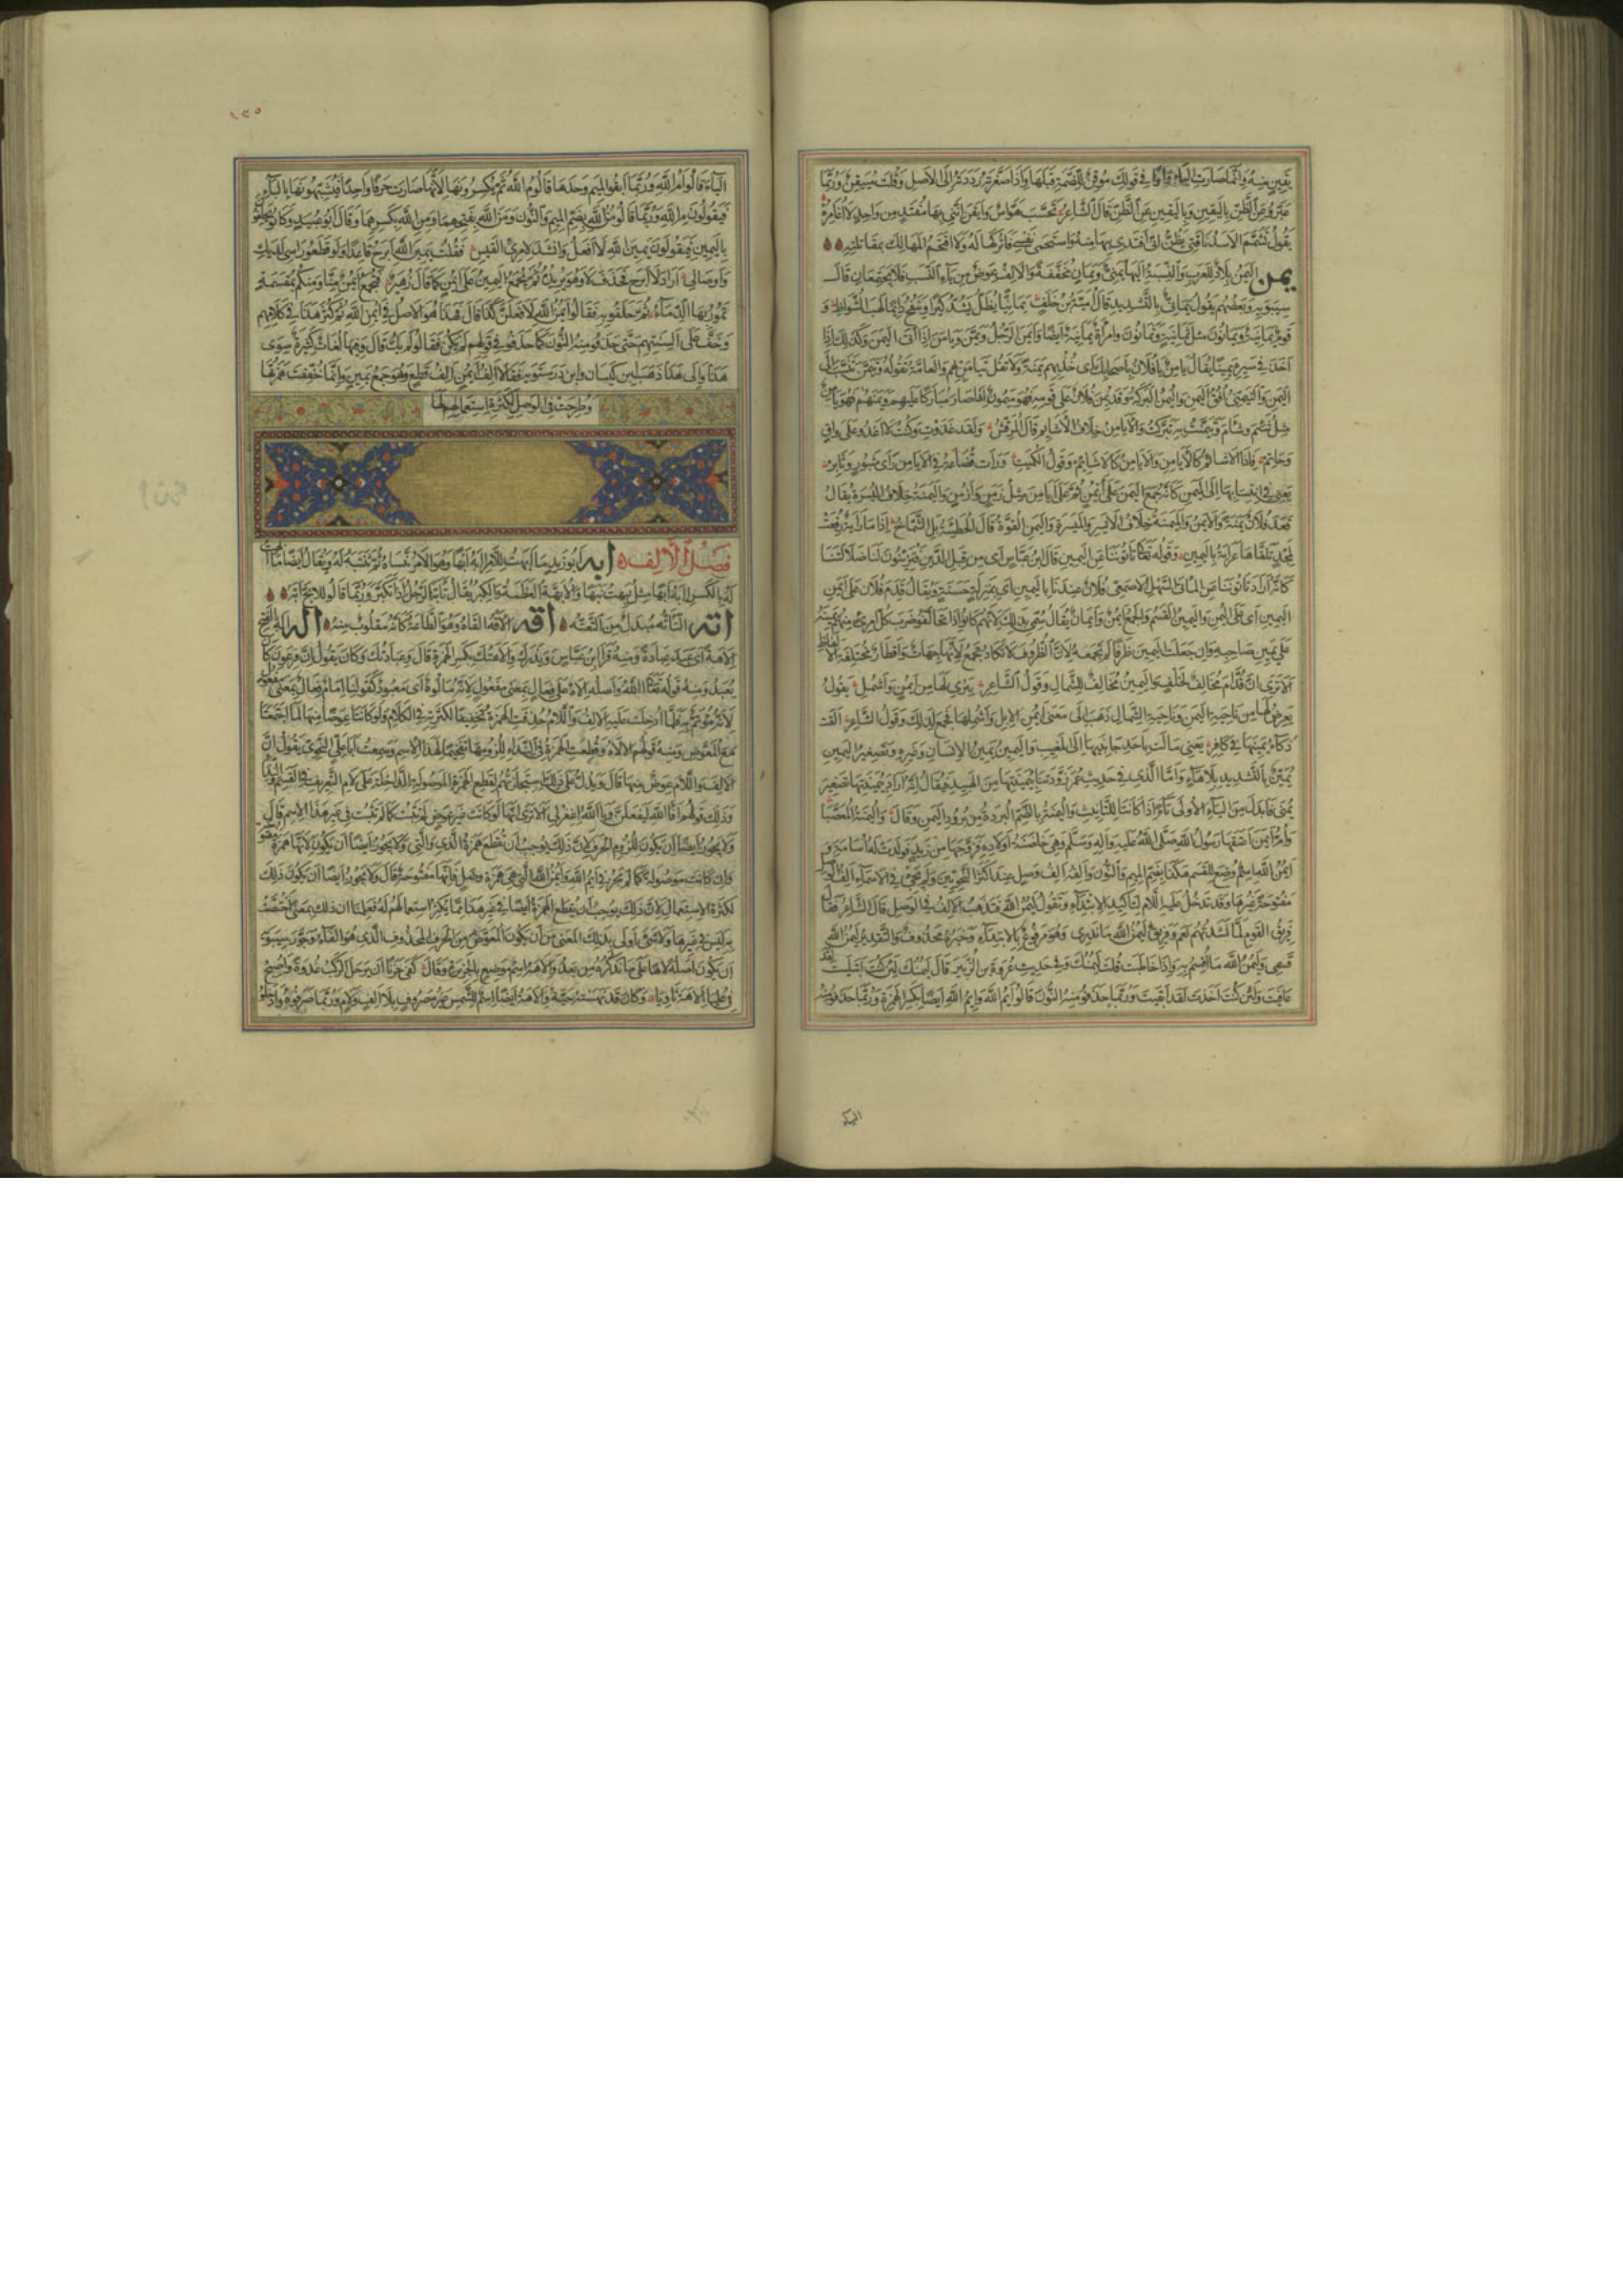 يقين منه وانما صارت الياء واوا في قولك موقن للضمة قبلها واذا صغرته رددته الى الاصل وقلت مييقن وربما
عبروا عن الظن باليقين وباليقين عن الظن قال الشاعر تحسب هواس وايقن انني بها مفتد من واحد لا اغامره
يقول تشمم الاسد ناقتي يظن انني افتدي بها منه واستحمي نفسي فاتركها له ولا اقتحم المهالك بمقاتلته
يمن اليمن بلاد للعرب والنسبة اليها يمني ويمان مخففة والالف عوض من ياء النسب فلا يجتمعان قال
سيبويه وبعضهم يقول يماني بالتشديد قال امية بن خلف يمانيا يظل يشد كيرا وينفخ دائما لهب الشواظ و
قوم يمانية ويمانون مثل ثمانية وثمانون وامراة يمانية ايضا وايمن الرجل ويمن ويامن اذا اتى اليمن وكذلك اذا
اخذ في سيره يمينا يقال يامن يا فلان باصحابك اي خذ بهم يمنة ولا تقل تيامن بهم والعامة تقوله وتيمن تنسب الى
اليمن والتيمني افق اليمن واليمن البركة وقد يمن فلان على قومه فهو ميمون اذا صار مباركا عليهم ويمنهم فهو يامن
مثل شئم وشام وتيمنت به تبركت والايامن خلاف الاشايم قال المرقش ولقد غدوت وكنت لا اغدو على واق
وحاتم فاذا الاشائم كالايامن والايامن كالاشائم وقول الكميت ورات قضاعة في الايامن راي مثبور وثابر
يعني في انتسابها الى اليمن كانه جمع اليمن على ايمن ثم على ايامن مثل زمن وازمن واليمنة خلاف اليسرة يقال
قعد فلان يمنة والايمن والميمنة خلاف الايسر والميسرة واليمين القوة قال الشماخ اذا ما راية رفعت
لمجد تلقاها عرابة باليمين وقوله تعالى تاتوننا عن اليمين قال ابن عباس اي من قبل الدين فتزينون لنا ضلالتنا
كانه اراد تاتوننا عن الماتى السهل الاصمعي فلان عندنا باليمين اي بمنزلة حسنة ويقال قدم فلان على ايمن
اليمين اي على اليمن واليمين القسم والجمع ايمن وايمان يقال سمي بذلك لانهم كانوا اذا تحالفوا ضرب كل امرئ منهم يمينه
على يمين صاحبه وان جعلت اليمين ظرفا لم تجمعه لان الظروف لا تكاد تجمع لانها جهات واقطار مختلفة الالفاظ
الا ترى ان قدام مخالف لخلف واليمين مخالف للشمال وقول الشاعر يبري لها من ايمن واشمل يقول
يعرض لها من ناحية اليمن وناحية الشمال ذهب الى معنى ايمن الابل واشملها فجمع لذلك وقول الشاعر القت
ذكاء يمينها في كافر يعني مالت باحد جانبيها الى المغيب واليمين يمين الانسان وغيره وتصغير اليمين
يمين بالتشديد بلا هاء واما الذي في حديث عمر زودتنا يمينتيها من الهبيد فيقال انه اراد يمينتيها تصغير
يمنى فابدل من الياء الاولى تاء اذ كانتا للتانيث واليمنة بالضم البردة من برود اليمن وقال واليمنة المعصبا
وام ايمن اعتقها رسول الله صلى الله عليه واله وسلم وهي حاضنة اولاده فزوجها من زيد فولدت له اسامة و
ايمن الله اسم وضع للقسم هكذا بضم الميم والنون والفه الف وصل عند اكثر النحويين ولم يجئ في الاسماء الف الوصل
مفتوحة غيرها وقد تدخل عليه اللام لتاكيد الابتداء وتقول ليمن الله فتذهب الالف في الوصل قال الشاعر فقال
فريق القوم لما نشدتهم نعم وفريق ليمن الله ما ندري وهو مرفوع بالابتداء وخبره محذوف والتقدير ليمن الله
قسمي وليمن الله ما اقسم به واذا خاطبت قلت ليمنك وفي حديث عروة بن الزبير قال ليمنك لئن كنت ابتليت لقد
عافيت ولئن كنت اخذت لقد ابقيت وربما حذفوا منه النون قالوا ايم الله وايم الله ايضا بكسر الهمزة وربما حذفوا منه
اليا
١٢٥
الياء قالوا ام الله وربما ابقوا الميم وحدها قالوا م الله ثم يكسرونها لانها صارت حرفا واحدا فيشبهونها بالباء
فيقولون م الله وربما قالوا من الله بضم الميم والنون ومن الله بفتحهما ومن الله بكسرهما وقال ابو عبيد وكانوا يحلفون
باليمين فيقولون يمين الله لا افعل وانشد لامرئ القيس فقلت يمين الله ابرح قاعدا ولو قطعوا راسي لديك
واوصالي اراد لا ابرح فحذف لا وهو يريده ثم يجمع اليمين على ايمن كما قال زهير فتجمع ايمن منا ومنكم بمقسمة
تمور بها الدماء ثم حلفوا به فقالوا ايمن الله لافعلن كذا قال فهذا هو الاصل في ايمن الله ثم كثر هذا في كلامهم
وخف على السنتهم حتى حذفوا منه النون كما حذفوا في قولهم لم يكن فقالوا لم يك قال وفيها لغات كثيرة سوى
هذا والى هذا ذهب ابن كيسان وابن درستويه فقالا الف ايمن الف قطع وهو جمع يمين وانما خففت همزتها
وطرحت في الوصل لكثرة استعمالهم لها
فصل الالف ابه ابو زيد ما ابهت للامر آبه ابها وهو الامر تنساه ثم تتنبه له ويقال ايضا ما ابهت
له بالكسر آبه ابها مثل نبهت نبها والابهة العظمة والكبر يقال تابه الرجل اذا تكبر وربما قالوا للابح ابه
اته التاته مبدل من التعته اقه الاقه القاه وهو الطاعة كانه مقلوب منه اله اله بالفتح
الاهة اي عبد عبادة ومنه قرا ابن عباس ويذرك والاهتك بكسر الهمزة قال وعبادتك وكان يقول ان فرعون كان
يعبد ومنه قولنا الله واصله الاه على فعال بمعنى مفعول لانه مالوه اي معبود كقولنا امام فعال بمعنى مفعول
لانه مؤتم به فلما ادخلت عليه الالف واللام حذفت الهمزة تخفيفا لكثرته في الكلام ولو كانتا عوضا منها لما اجتمعتا
مع المعوض ومنه قولهم الالاه وقطعت الهمزة في النداء للزومها تفخيما لهذا الاسم وسمعت ابا علي النحوي يقول ان
الالف واللام عوض منها قال ويدل على ذلك استجازتهم لقطع الهمزة الموصولة الداخلة على لام التعريف في القسم والنداء
وذلك قولهم افا الله ليفعلن ويا الله اغفر لي الا ترى انها لو كانت غير عوض لم تثبت كما لم تثبت في غير هذا الاسم قال
ولا يجوز ايضا ان يكون للزوم الحرف لان ذلك يوجب ان تقطع همزة الذي والتي ولا يجوز ايضا ان يكون لانها همزة مفتوحة
وان كانت موصولة كما لم يجز في ايم الله وايمن الله التي هي همزة وصل فانها مفتوحة قال ولا يجوز ايضا ان يكون ذلك
لكثرة الاستعمال لان ذلك يوجب ان تقطع الهمزة ايضا في غير هذا مما يكثر استعمالهم له فعلمنا ان ذلك بمعنى اختصت
به ليس في غيرها ولا شيء اولى بذلك المعنى من ان يكون المعوض من الحرف المحذوف الذي هو الفاء وجوز سيبويه
ان يكون اصله لاها على ما نذكره من بعد والاهة اسم موضع بالجزيرة وقال كفى حزنا ان يرحل الركب غدوة واصبح
في عليا الاهة ثاويا وكان قد نهسته حية والاهة ايضا اسم للشمس غير مصروف بلا الف ولام وربما صرفوه وادخلوا